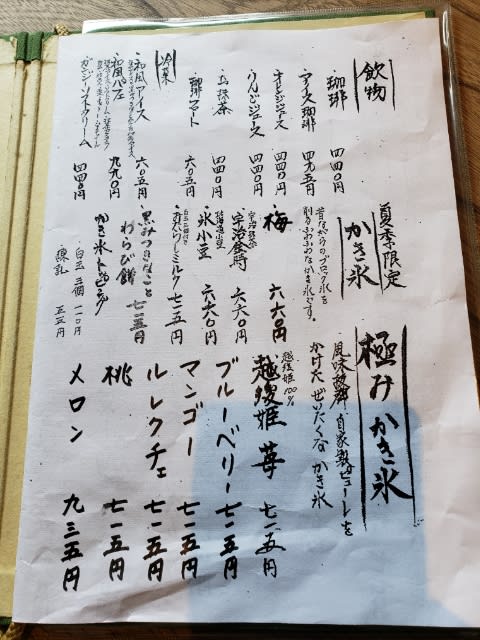 飲物
珈琲 四四〇円
アイス珈琲 四九五円
オレンジジュース 四四〇円
りんごジュース 四四〇円
お抹茶 四四〇円
珈琲フロート 六〇五円
冷菓
和風アイス 六〇五円
和風パフェ 九九〇円
ソフトクリーム 四四〇円
夏季限定
かき氷
昔ながらのブロック氷を
削るふわふわなかき氷です。
梅 六六〇円
宇治抹茶
宇治金時 六六〇円
北海道小豆
氷小豆 六六〇円
ミルク 七一五円
黒みつきなこと
わらび餅 七一五円
かき氷トッピング
白玉三個 一一〇円
練乳 五五円
極みかき氷
風味抜群 自家製ピューレを
かけた ぜいたくな かき氷
越後姫100%
越後姫 苺 七一五円
ブルーベリー 七一五円
マンゴー 七一五円
ルレクチェ 七一五円
桃 七一五円
メロン 九三五円